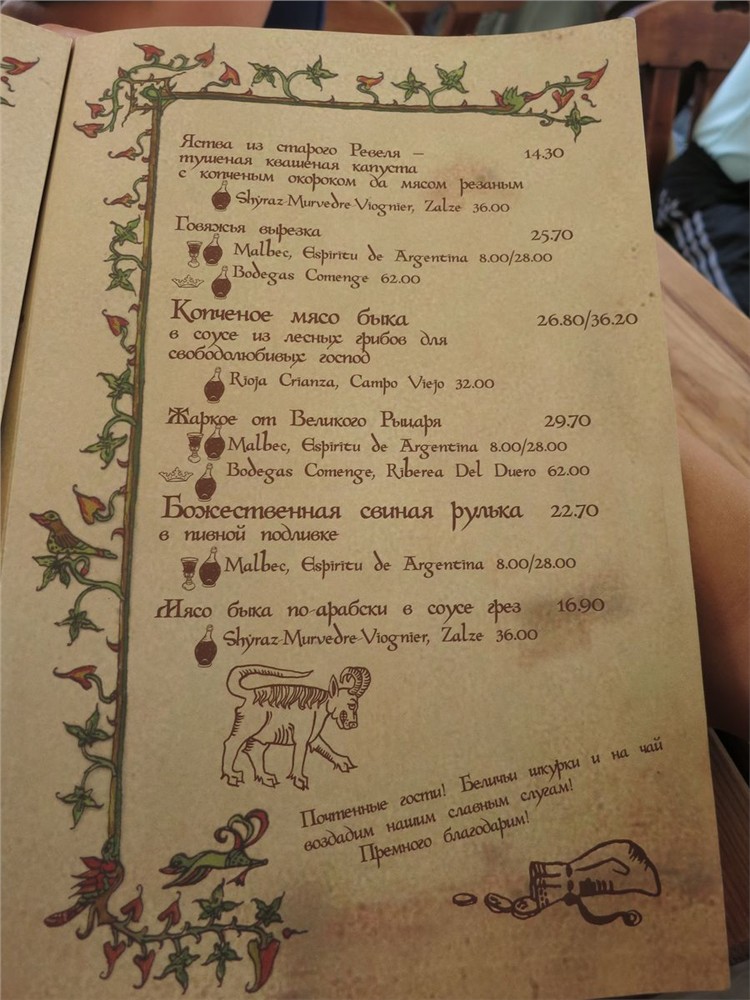 Яства из старого Ревеля — 14.30
тушеная квашеная капуста
с копченым окороком да мясом резаным
Shyraz-Murvedre-Viognier, Zalze 36.00
Говяжья вырезка 25.70
Malbec, Espiritu de Argentina 8.00/28.00
Bodegas Comenge 62.00
Копченое мясо быка 26.80/36.20
в соусе из лесных грибов для
свободолюбивых господ
Rioja Crianza, Campo Viejo 32.00
Жаркое от Великого Рыцаря 29.70
Malbec, Espiritu de Argentina 8.00/28.00
Bodegas Comenge, Riberea Del Duero 62.00
Божественная свиная рулька 22.70
в пивной подливке
Malbec, Espiritu de Argentina 8.00/28.00
Мясо быка по-арабски в соусе грез 16.90
Shyraz-Murvedre-Viognier, Zalze 36.00
Почтенные гости! Беличьи шкурки и на чай
воздадим нашим славным слугам!
Премного благодарим!